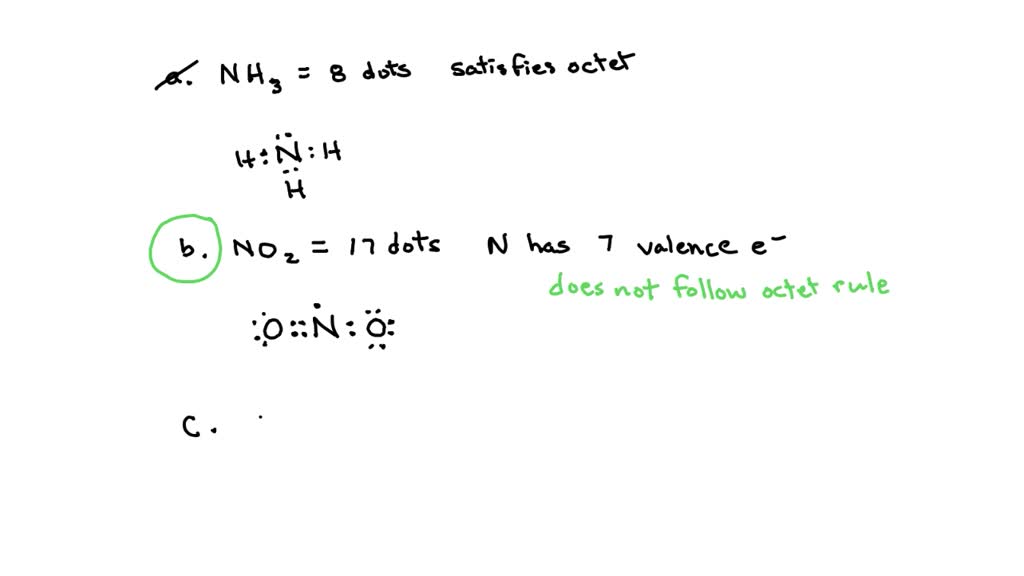 a. NH₃ = 8 dots satisfies octet
H:N:H
H
b. NO₂ = 17 dots N has 7 valence e⁻
does not follow octet rule
:O::N:O:
c.